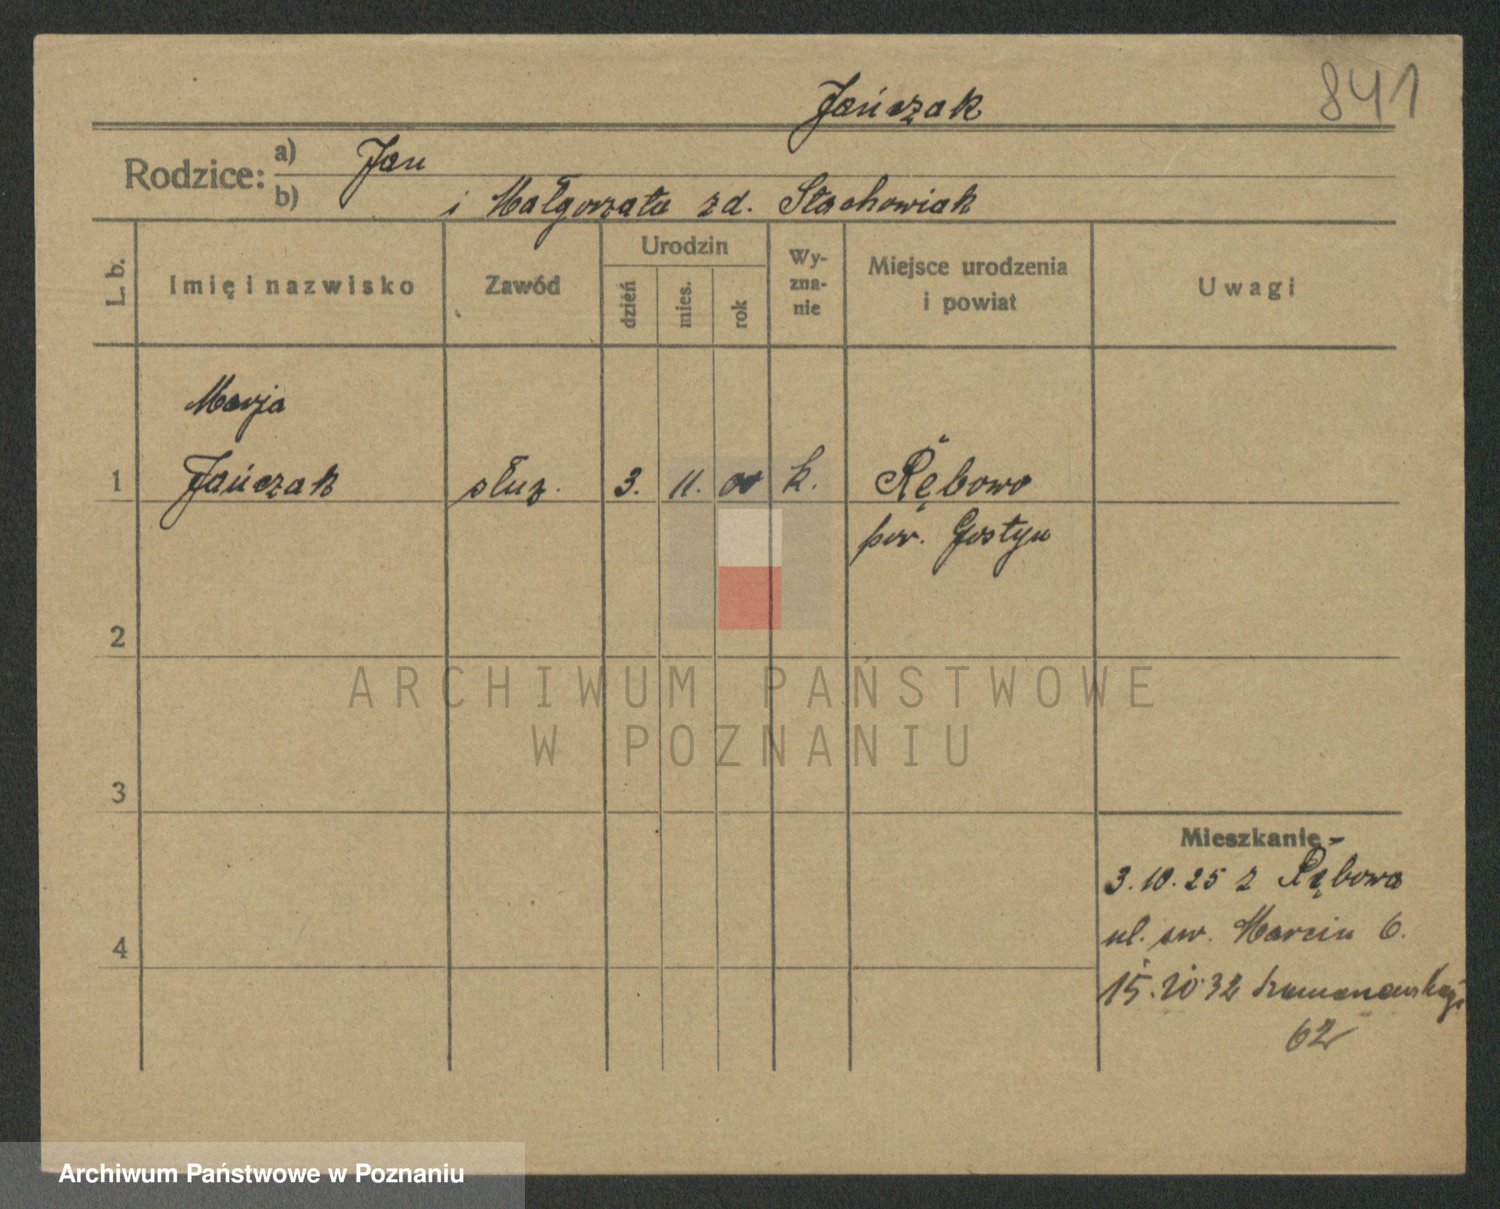 841
Jańczak
Rodzice:
a) Jan
b) i Małgorzata zd. Stachowiak
L. b.
Imię i nazwisko
Zawód
Urodzin
dzień
mies.
rok
Wy-
zna-
nie
Miejsce urodzenia
i powiat
Uwagi
Marja
1 Jańczak służ. 3. 11. 00 k. Rębowo
pow. Gostyn
2
ARCHIWUM PAŃSTWOWE
W POZNANIU
3
Mieszkanie
3.10.25 z Rębowa
ul. św. Marcin 6.
4
15.10.32
62
Archiwum Państwowe w Poznaniu